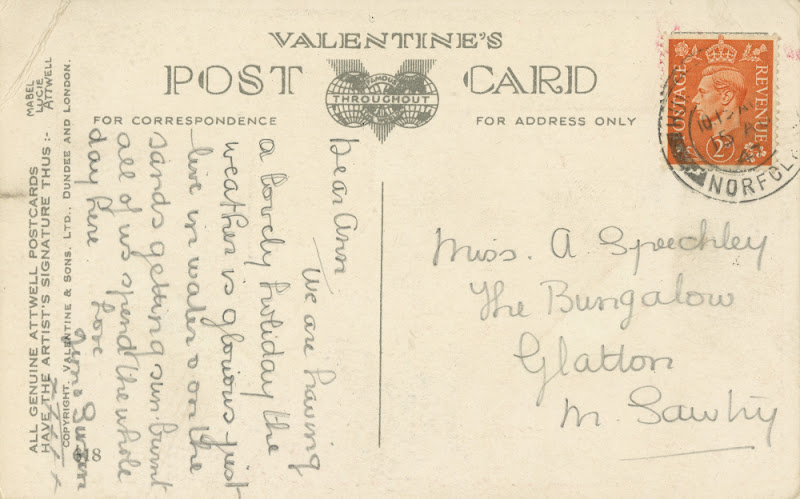 VALENTINE'S
POST CARD
FAMOUS
THROUGHOUT
FOR CORRESPONDENCE
FOR ADDRESS ONLY
ALL GENUINE ATTWELL POSTCARDS
HAVE THE ARTIST'S SIGNATURE THUS :-
MABEL
LUCIE
ATTWELL
COPYRIGHT, VALENTINE & SONS, LTD., DUNDEE AND LONDON.
618
Dear Ann
We are having
a lovely holiday the
weather is glorious just
live in water & on the
sands getting sun-burnt
all of us spend the whole
day here
Love
Susan
POSTAGE
REVENUE
2D
NORFOL
Miss. A Speechley
The Bungalow
Glatton